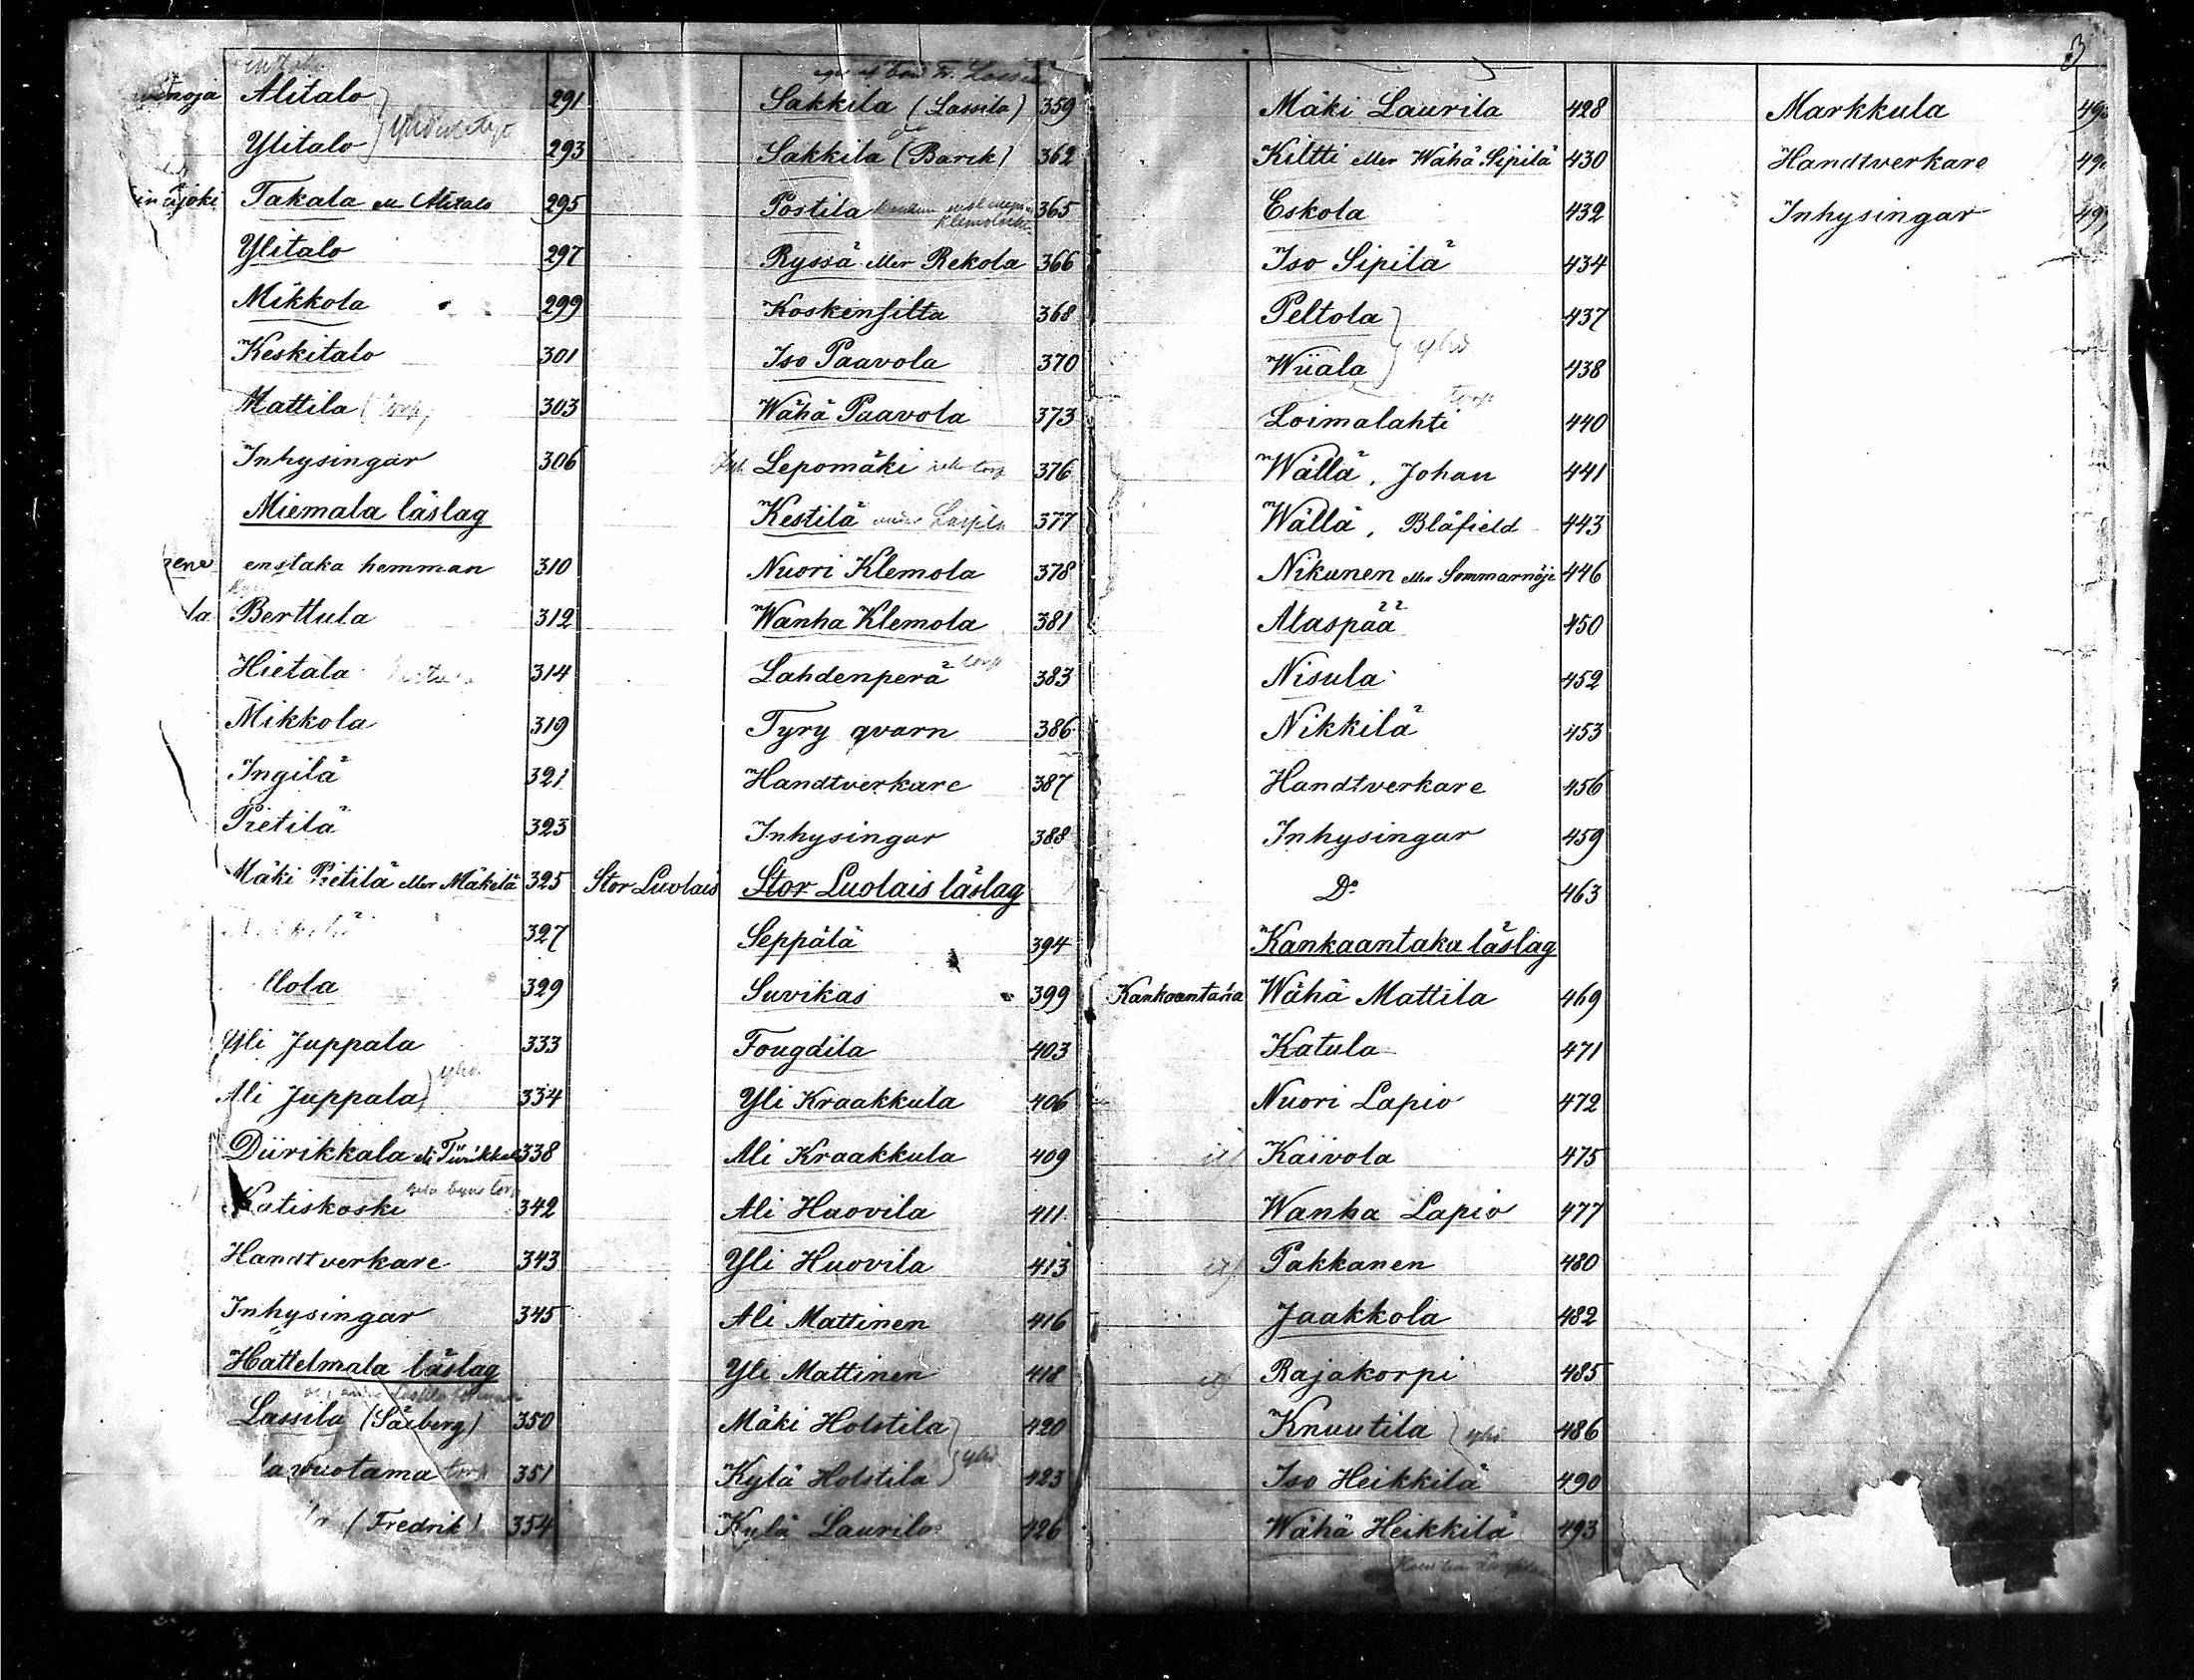 3
Alitalo 291
Ylitalo 293
Takala ell Alitalo 295
Ylitalo 297
Mikkola 299
Keskitalo 301
Mattila (torp) 303
Inhysingar 306
Miemala läslag
enstaka hemman 310
Berttula 312
Hietala 314
Mikkola 319
Ingilä 321
Pietilä 323
Mäki Pietilä eller Mäkelä 325
327
329
Yli Juppala 333
Ali Juppala yhd. 334
Diirikkala ell. Tiirikkala 338
Katiskoski 342
Handtverkare 343
Inhysingar 345
Hattelmala läslag
Lassila (Säxberg) 350
torp 351
(Fredrik) 354
Sakkila (Lassila) 359
Sakkila (Barck) 362
Postila 365
Ryssä eller Rekola 366
Koskensilta 368
Iso Paavola 370
Wähä Paavola 373
Lepomäki torp 376
Kestilä 377
Nuori Klemola 378
Wanha Klemola 381
Lahdenperä torp 383
Tyry qvarn 386
Handtverkare 387
Inhysingar 388
Stor Luolais Stor Luolais läslag
Seppälä 394
Suvikas 399
Fougdila 403
Yli Kraakkula 406
Ali Kraakkula 409
Ali Huovila 411
Yli Huovila 413
Ali Mattinen 416
Yli Mattinen 418
Mäki Holstila 420
Kylä Holstila yhd 423
Kylä Laurila 426
Mäki Laurila 428
Kiltti eller Wähä Sipilä 430
Eskola 432
Iso Sipilä 434
Peltola 437
yhd
Wiiala 438
torp
Loimalahti 440
Wällä, Johan 441
Wällä, Blåfield 443
Nikunen eller Sommarnöje 446
Alaspää 450
Nisula 452
Nikkilä 453
Handtverkare 456
Inhysingar 459
Do 463
Kankaantaka läslag
Kankaantaka Wähä Mattila 469
Katula 471
Nuori Lapio 472
Kaivola 475
Wanha Lapio 477
Pakkanen 480
Jaakkola 482
Rajakorpi 485
Knuutila yhd 486
Iso Heikkilä 490
Wähä Heikkilä 493
Markkula
Handtverkare
Inhysingar